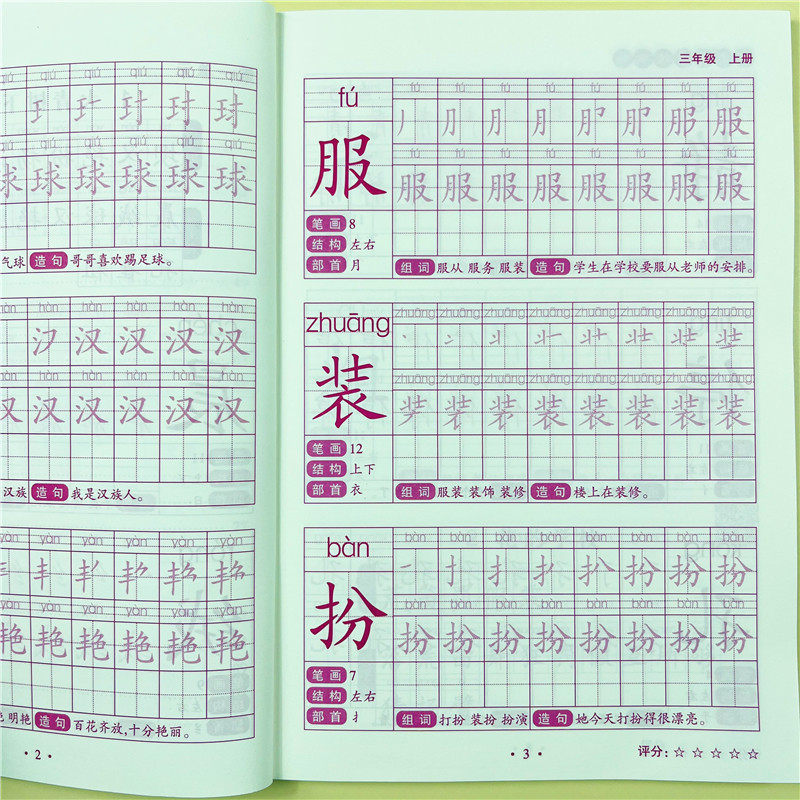 qiú qiú qiú qiú qiú qiú
球 球 球 球 球 球
气球 造句 哥哥喜欢踢足球。
hàn hàn hàn hàn hàn hàn
汉 汉 汉 汉 汉
hàn hàn hàn hàn hàn hàn
汉 汉 汉 汉 汉 汉
汉族 造句 我是汉族人。
yàn yàn yàn yàn yàn yàn
艳 艳
yàn yàn yàn yàn yàn yàn
艳 艳 艳 艳 艳 艳
艳 明艳 造句 百花齐放,十分艳丽。
· 2 ·
三年级 上册
fú
服
笔画 8
结构 左右
部首 月
fú fú fú fú fú fú fú fú
服
fú fú fú fú fú fú fú fú
服 服 服 服 服 服 服 服
组词 服从 服务 服装 造句 学生在学校要服从老师的安排。
zhuāng
装
笔画 12
结构 上下
部首 衣
zhuāng zhuāng zhuāng zhuāng zhuāng zhuāng zhuāng zhuāng
zhuāng zhuāng zhuāng zhuāng zhuāng zhuāng zhuāng zhuāng
装 装 装 装 装
组词 服装 装饰 装修 造句 楼上在装修。
bàn
扮
笔画 7
结构 左右
部首 扌
bàn bàn bàn bàn bàn bàn bàn bàn
扮 扮 扮
bàn bàn bàn bàn bàn bàn bàn bàn
扮 扮 扮 扮 扮 扮 扮 扮
组词 打扮 装扮 扮演 造句 她今天打扮得很漂亮。
· 3 ·
评分: ☆ ☆ ☆ ☆ ☆